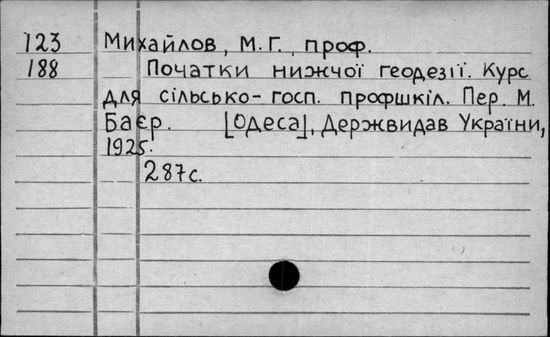 123 Михайлов, М.Г., проф.
188 Початки нижчої геодезії. Курс
для сільсько-госп. профшкіл. Пер. М.
Баєр. [Одеса], Державидав України,
1925.
287с.